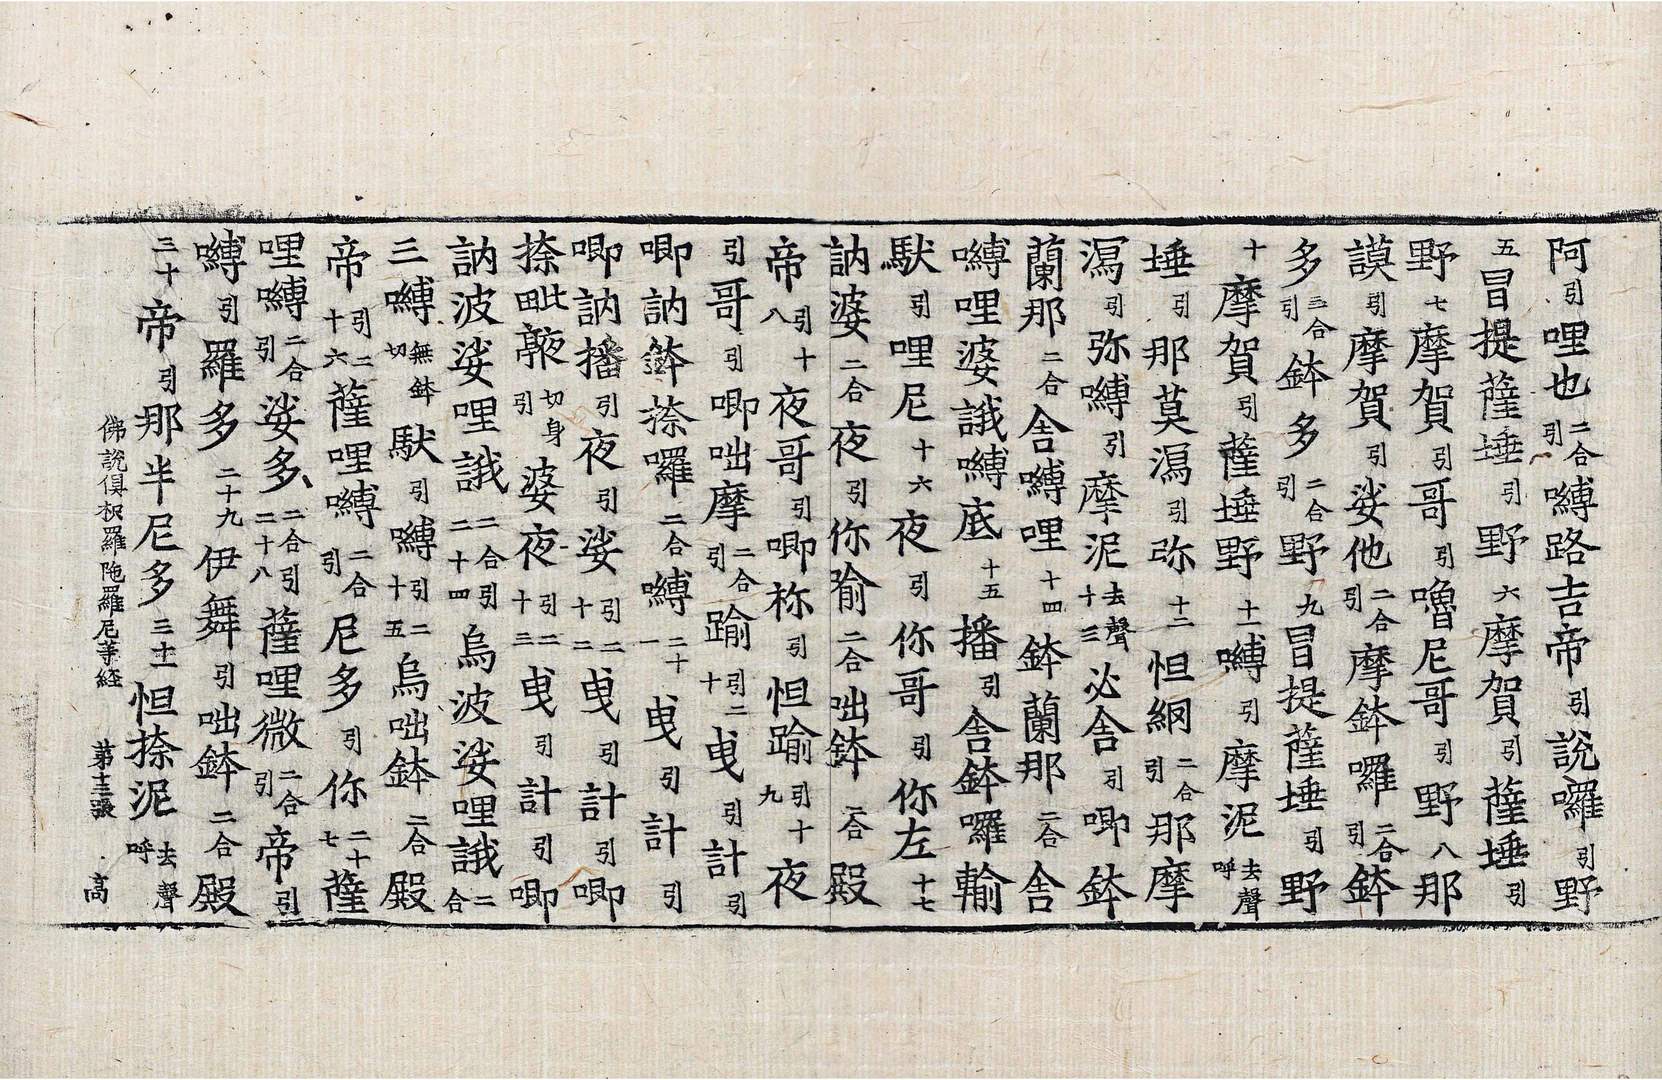 阿引哩也二合引嚩路吉帝引說囉引野
五冒提薩埵引野六摩賀引薩埵引
野七摩賀引哥引嚕尼哥引野八那
謨引摩賀引娑他二合引摩鉢囉二合引鉢
多三合引鉢多二合引野九冒提薩埵引野
十摩賀引薩埵野十一嚩引摩泥去聲呼
埵引那莫㵼引弥十二怛網二合引那摩
㵼引弥嚩引摩泥去聲十三必舎引唧鉢
蘭那二合舎嚩哩十四鉢蘭那二合舎
嚩哩婆誐嚩底十五播引舎鉢囉輸
馱引哩尼十六夜引你哥引你左十七
訥婆二合夜引你隃二合咄鉢二合殿
帝引十八夜哥引唧祢引怛踰引十九夜
引哥引唧咄摩二合引踰引二十曵引計引
唧訥鉢捺囉二合嚩二十一曵引計引
唧訥播引夜引娑引二十二曵引計引唧
捺毗𠆙切身引婆夜引二十三曵引計引唧
訥波娑哩誐二合引二十四烏波娑哩誐二合
三嚩無鉢切馱引嚩引二十五烏咄鉢二合殿
帝引二十六薩哩嚩二合引尼多引你二十七薩
哩嚩二合引娑多二合引二十八薩哩微二合引帝引
嚩引羅多二十九伊舞引咄鉢二合殿
三十帝引那半尼多三十一怛捺泥去聲呼
佛說俱枳羅陁羅尼等経 第十三張 高